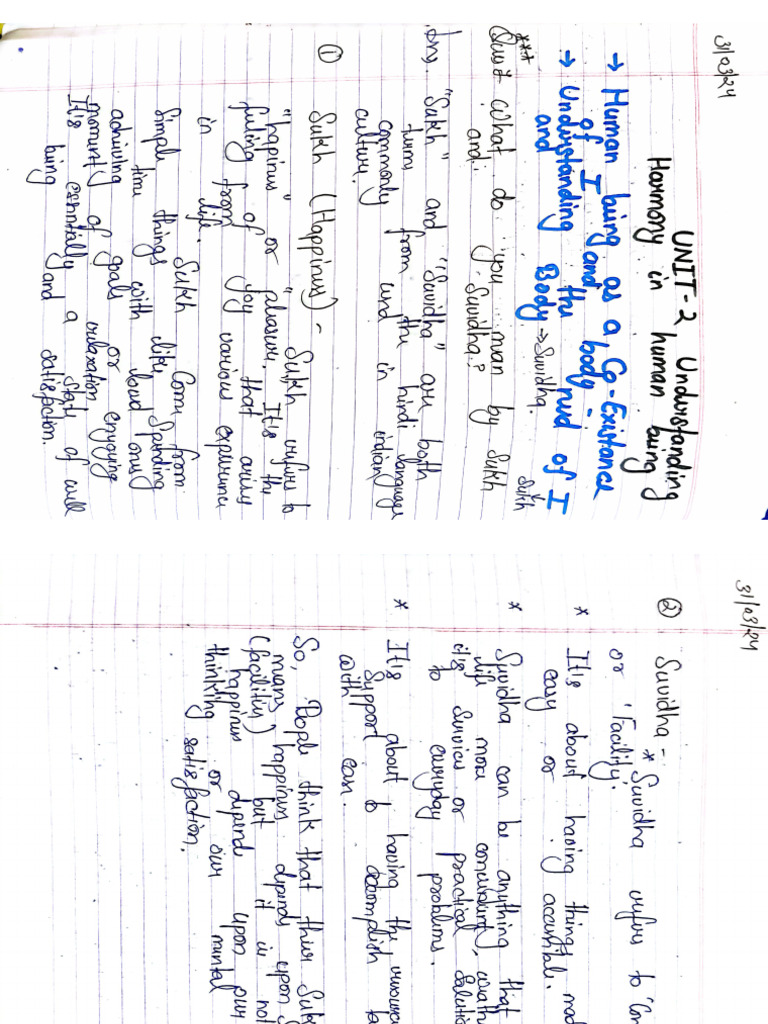 31/03/24
UNIT-2 Understanding
Harmony in human being
→ Human being as a Co-Existance
of I and the body
→ Understanding the nid of I
and Body → Suvidha.
Sukh
***
Que1 What do you mean by Sukh
and Suvidha?
Ans. "Sukh" and "Suvidha" are both
turms from the hindi language
commonly und in indian
culture.
① Sukh (Happinus) -
Sukh refers to
"happinus" or "pleasure. It's the
feeling of joy that arises
from various experience
in life.
Sukh Com from
Simple things like Spending
time with loved ones
achiving of goals or enjoying
moments of relaxation
It's essentially a state of well
being and satisfaction.
31/03/24
② Suvidha -
* Suvidha refers to
or 'Facility'.
* It's about having things
easy or accessible.
* Suvidha can be anything that
life more convenient,
it's Survices or practical
to everyday problems.
* It's about having the
Support to accomplish
with ease.
So, People think that their
means happinus depends upon
(facilities) but it is not
happinus depend upon our
thinking or our mental
satisfaction.